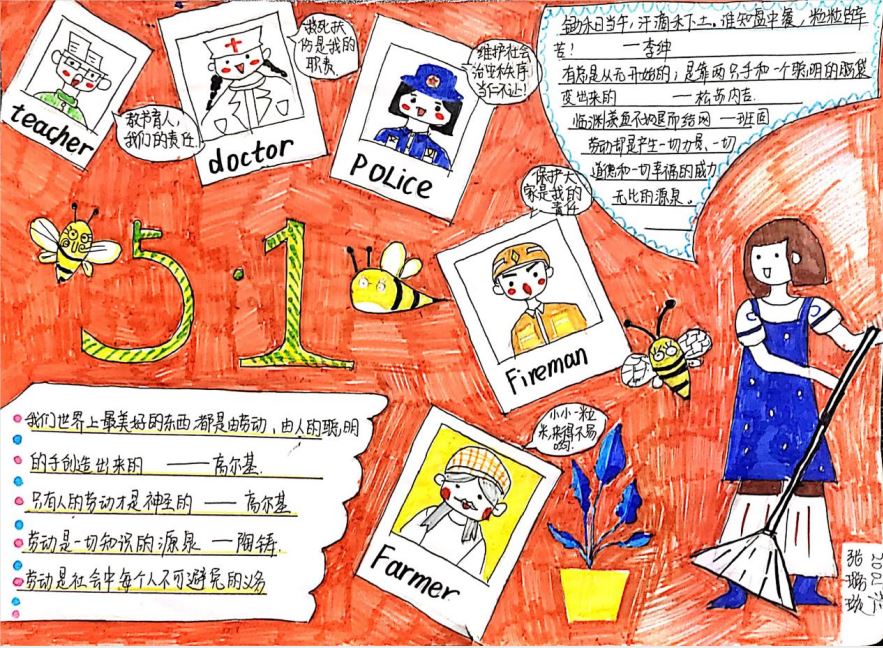 teacher
教书育人,
我们的责任.
doctor
救死扶
伤是我的
职责.
POLice
维护社会
治安秩序
当仁不让!
锄禾日当午,汗滴禾下土。谁知盘中餐,粒粒皆辛
苦! ——李绅
有总是从无开始的;是靠两只手和一个聪明的脑袋
变出来的 ——松苏内吉.
临渊羡鱼不如退而结网 —班固
劳动却是产生一切力量、一切
道德和一切幸福的威力
无比的源泉。
5·1
保护大
家是我的
责任
Fireman
我们世界上最美好的东西,都是由劳动、由人的聪明
的手创造出来的 ——高尔基.
只有人的劳动才是神圣的 ——高尔基
劳动是一切知识的源泉 —陶铸.
劳动是社会中每个人不可避免的义务
小小一粒
米,来得不易
哟.
Farmer
2001班